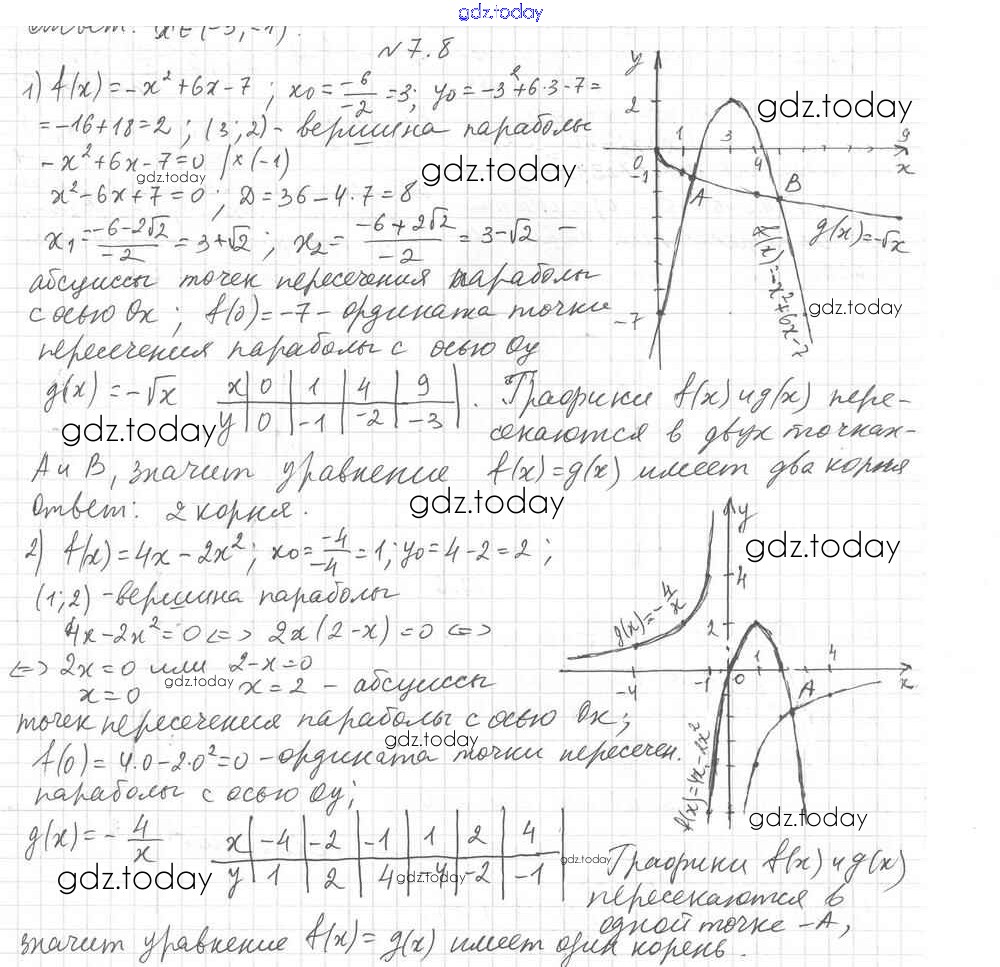 gdz.today
ответ: x∈(-3;-1).
№7.8
1) f(x)=-x²+6x-7 ; x₀=-6/-2=3; y₀=-3²+6·3-7=
=-16+18=2 ; (3;2)- вершина параболы
gdz.today
-x²+6x-7=0 |×(-1)
gdz.today
gdz.today
x²-6x+7=0 ; D=36-4·7=8
x₁=-6-2√2/-2=3+√2 ; x₂=-6+2√2/-2=3-√2 -
абсциссы точек пересечения параболы
с осью Ox ; f(0)=-7- ордината точки
пересечения параболы с осью Oy
y
2
1 3 9
0 4 x
-1
A B
g(x)=-√x
f(x)=-x²+6x-7
gdz.today
-7
g(x)=-√x x 0 1 4 9
y 0 -1 -2 -3
gdz.today
. Графики f(x) и g(x) пере-
секаются в двух точках-
А и В, значит уравнение f(x)=g(x) имеет два корня
gdz.today
Ответ: 2 корня.
2) f(x)=4x-2x²; x₀=-4/-4=1; y₀=4-2=2 ;
(1;2)-вершина параболы
4x-2x²=0 <=> 2x(2-x)=0 <=>
<=> 2x=0 или 2-x=0
x=0 gdz.today x=2 - абсциссы
точек пересечения параболы с осью Ox;
gdz.today
f(0)=4·0-2·0²=0-ордината точки пересечен.
параболы с осью Oy;
y
gdz.today
4
g(x)=-4/x
2
-4 -1 0 1 4 x
A
f(x)=4x-2x²
gdz.today
g(x)=-4/x x -4 -2 -1 1 2 4
y 1 2 4 -4 -2 -1
gdz.today
gdz.today
gdz.today
Графики f(x) и g(x)
пересекаются в
одной точке -А,
значит уравнение f(x)=g(x) имеет один корень.